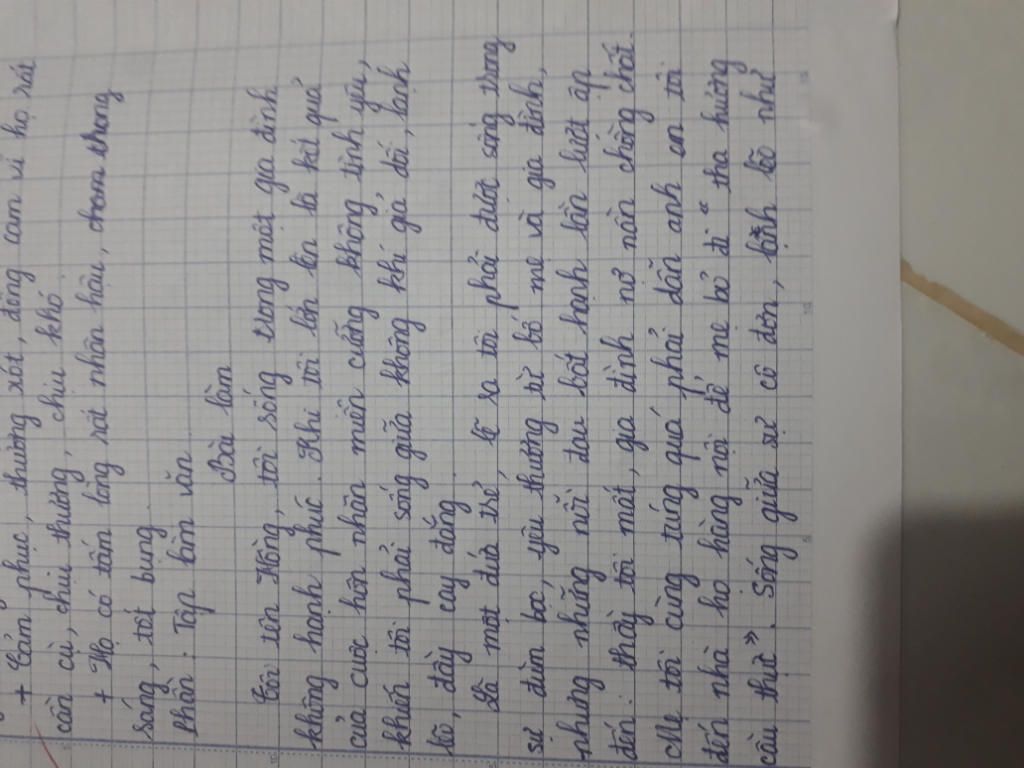 + Cảm phục, thương xót, đồng cam vì họ rất
cần cù, chịu thương, chịu khó
+ Họ có tấm lòng rất nhân hậu, trong
sáng, tốt bụng.
Phần. Tập làm văn
Bài làm
Tôi tên Hồng, tôi sống trong một gia đình
không hạnh phúc. Khi tôi lớn lên là kết quả
của cuộc hôn nhân miễn cưỡng không tình yêu,
khiến tôi phải sống giữa không khí giả dối, lạnh
lẽ, đầy cay đắng.
Là một đứa trẻ, lẽ ra tôi phải được sống trong
sự đùm bọc, yêu thương từ bố mẹ và gia đình,
nhưng những nỗi đau bất hạnh lần lượt ập
đến: thầy tôi mất, gia đình nợ nần chồng chất.
Mẹ tôi cùng túng quá phải dẫn anh em tôi
đến nhà họ hàng nội để mẹ bỏ đi "tha hương
cầu thực". Sống giữa sự cô đơn, lạnh lẽo như